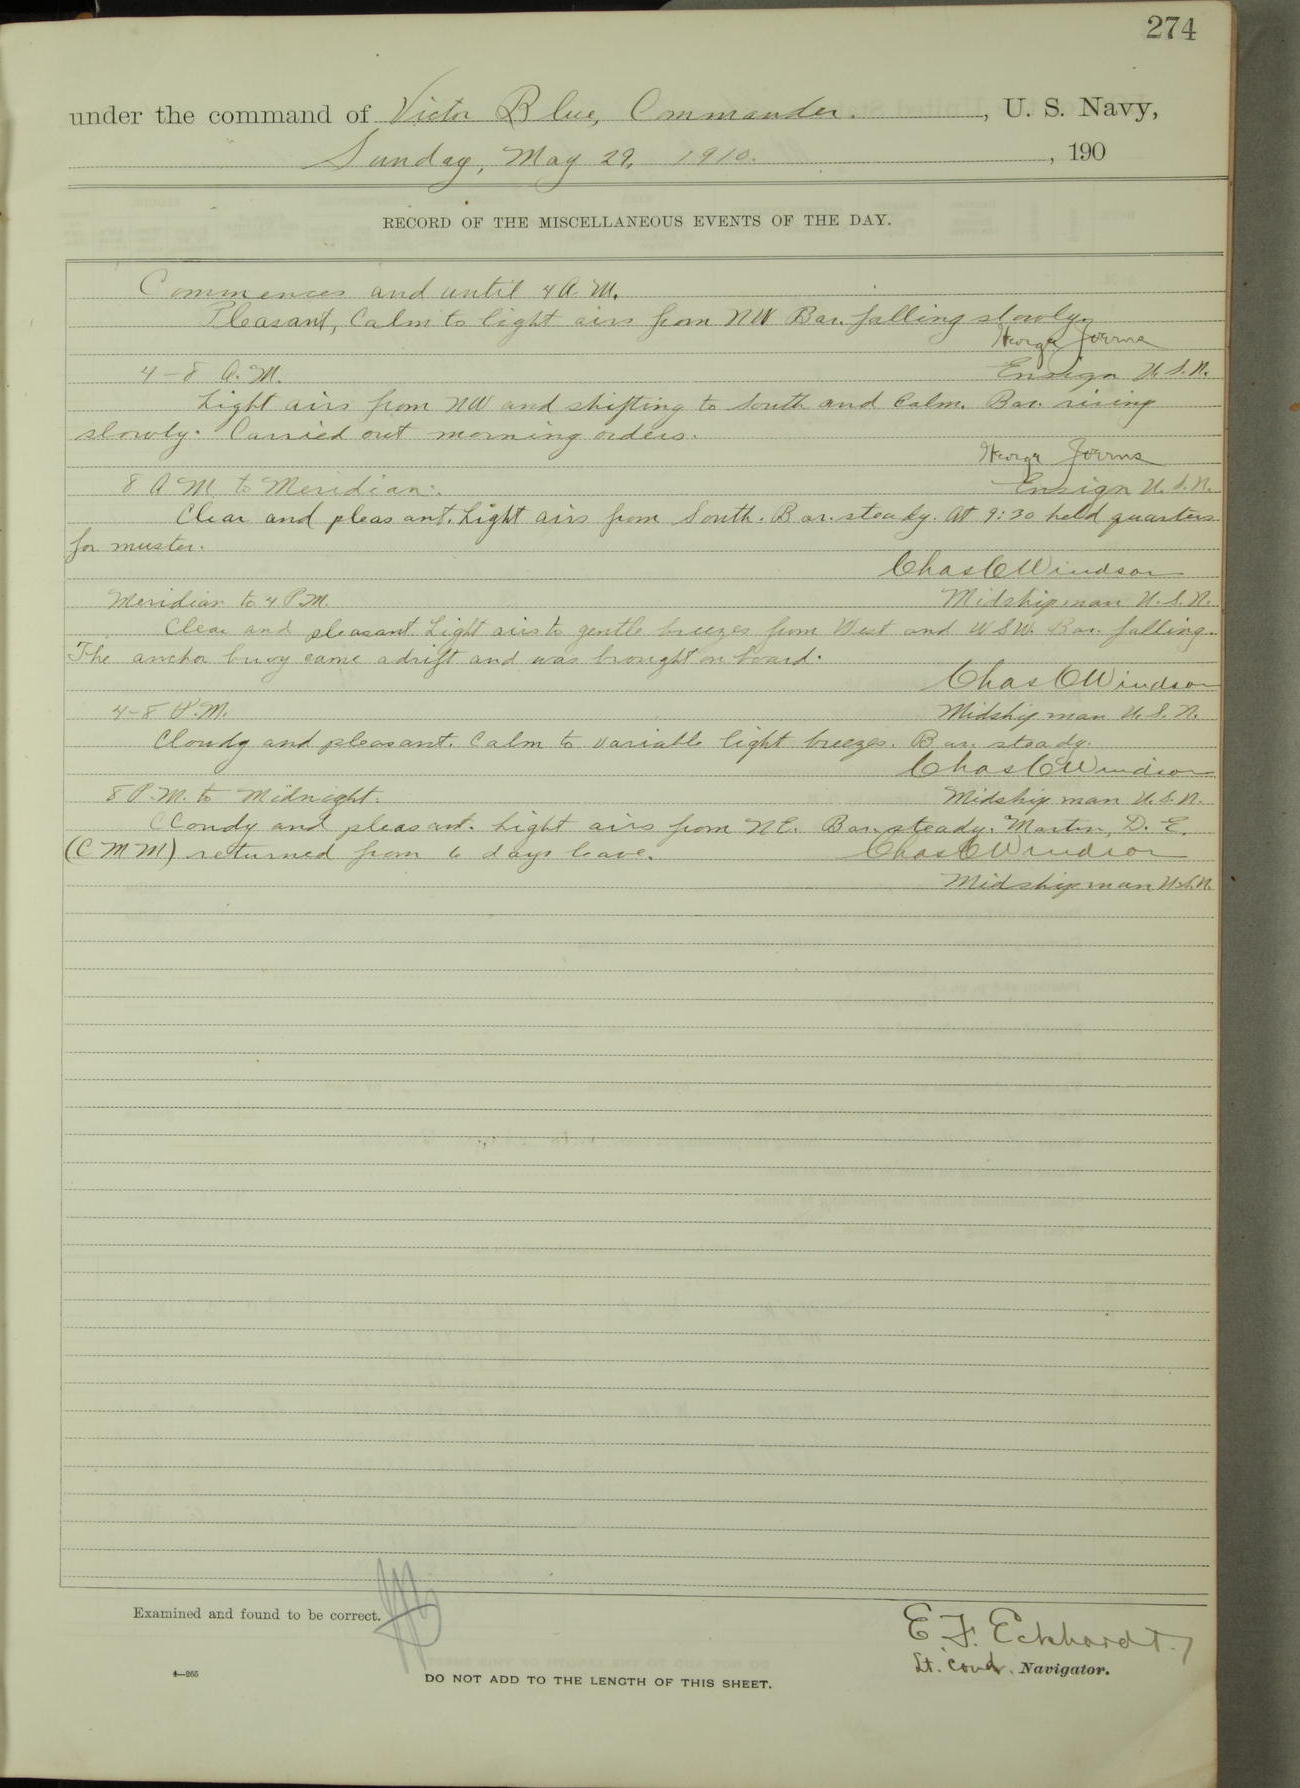 274
under the command of Victor Blue, Commander. , U. S. Navy,
Sunday, May 29, 1910. , 190
RECORD OF THE MISCELLANEOUS EVENTS OF THE DAY.
Commences and until 4 A.M.
Pleasant, Calm to light airs from NW Bar. falling slowly.
George Joerns
4-8 A.M. Ensign U.S.N.
Light airs from NW and shifting to South and Calm. Bar. rising
slowly. Carried out morning orders.
George Joerns
8 A M to Meridian. Ensign U.S.N.
Clear and pleasant. Light airs from South. Bar. steady. At 9:30 held quarters
for muster.
Chas C Windsor
Meridian to 4 P.M. Midshipman U.S.N.
Clear and pleasant. Light airs to gentle breezes from West and WSW. Bar. falling.
The anchor buoy came adrift and was brought on board.
Chas C Windsor
4-8 P.M. Midshipman U.S.N.
Cloudy and pleasant. Calm to variable light breezes. Bar. steady.
Chas C Windsor
8 P.M. to Midnight. Midshipman U.S.N.
Cloudy and pleasant. Light airs from NE. Bar. steady. Martin, D. E.
(C M M) returned from 6 days leave. Chas C Windsor
Midshipman U.S.N.
Examined and found to be correct.
E. F. Eckhardt,
Lt. Comd. Navigator.
4—265
DO NOT ADD TO THE LENGTH OF THIS SHEET.